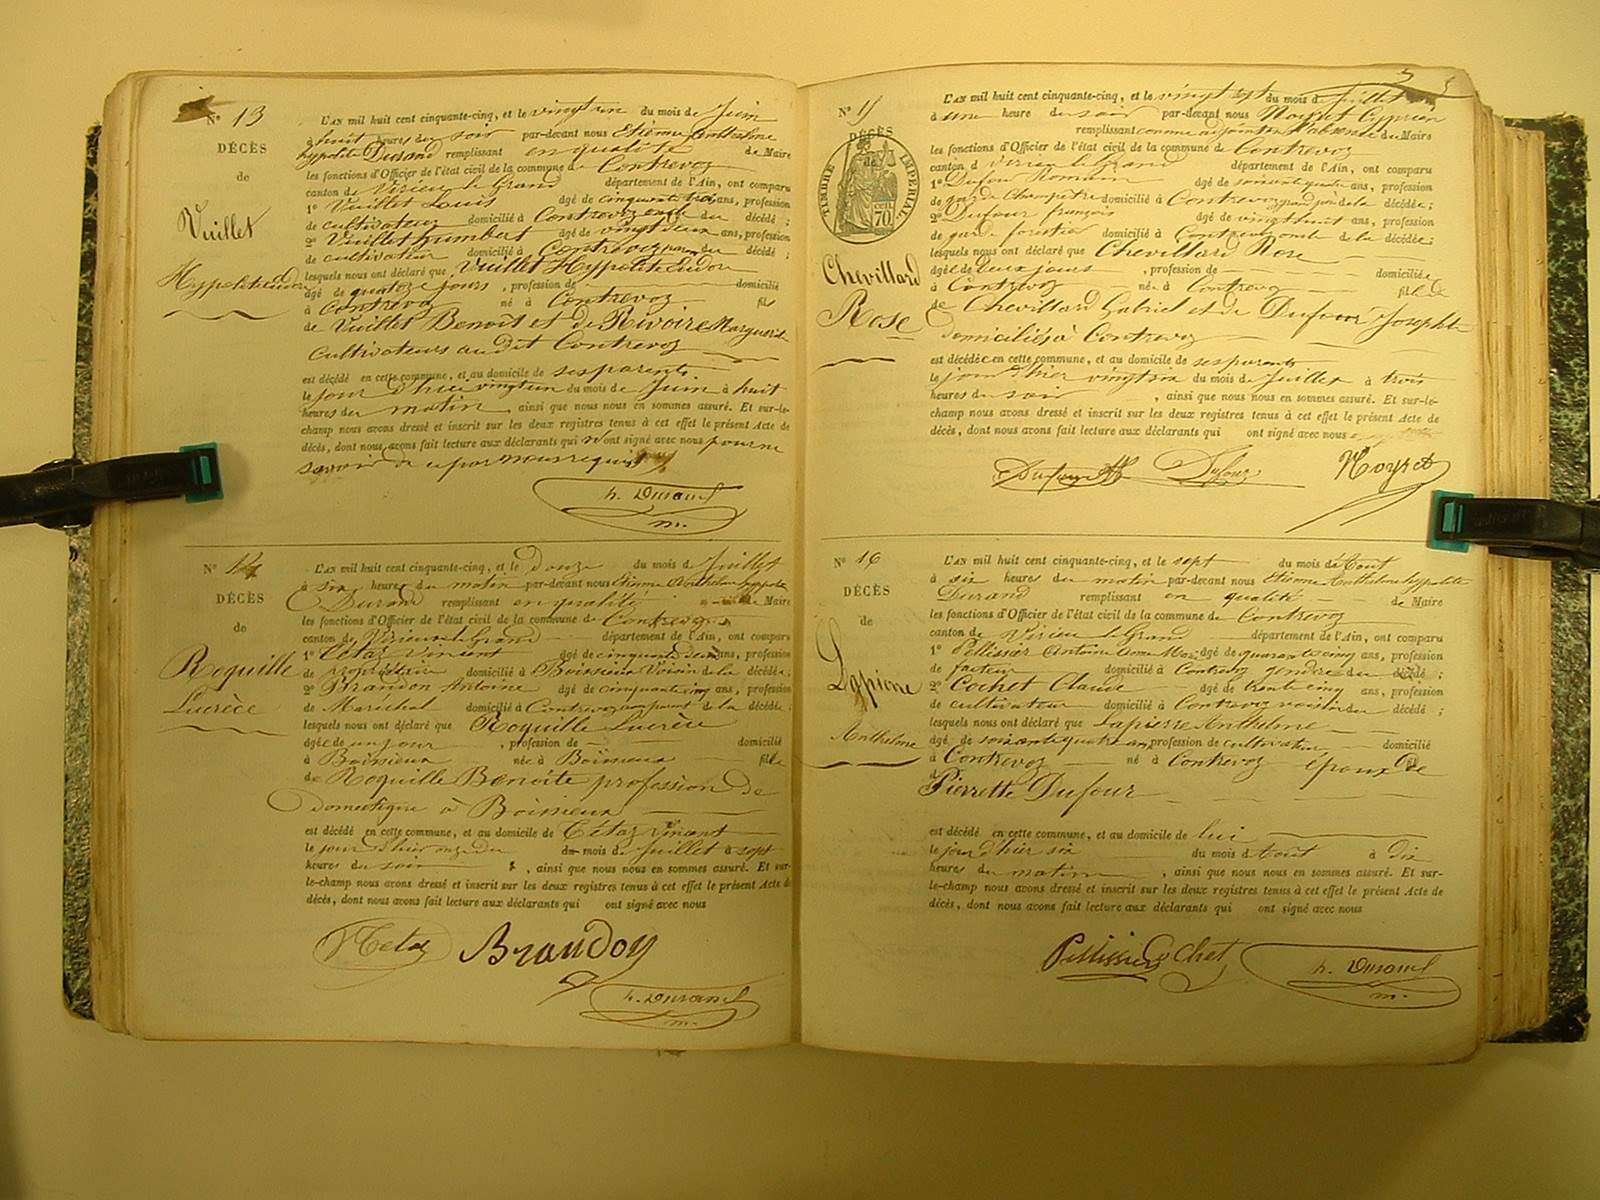 N° 13
DÉCÈS
de
Vuillet
L'AN mil huit cent cinquante-cinq, et le vingt un du mois de Juin
à huit heures du soir par-devant nous Etienne Anthelme
hypolite Durand remplissant en qualité de Maire
les fonctions d'Officier de l'état civil de la commune de Contrevoz
canton de Virieu le Grand département de l'Ain, ont comparu
1° Vuillet Louis âgé de cinquante ans, profession
de cultivateur domicilié à Contrevoz oncle du décédé ;
2° Vuillet humbert âgé de vingt deux ans, profession
de cultivateur domicilié à Contrevoz du décédé ;
lesquels nous ont déclaré que Vuillet Hypolite
âgé de quatorze jours , profession de domicilié
à Contrevoz né à Contrevoz fils
de Vuillet Benoit et de Rivoire Marguerite
cultivateurs au dit Contrevoz
est décédé en cette commune, et au domicile de ses parents
le jour d'hui vingt un du mois de Juin à huit
heures du matin , ainsi que nous nous en sommes assuré. Et sur-le-
champ nous avons dressé et inscrit sur les deux registres tenus à cet effet le présent Acte de
décès, dont nous avons fait lecture aux déclarants qui n'ont signé avec nous pour ne
savoir de ce par nous requis
h. Durand
m.
N° 14
DÉCÈS
de
Roquille
Lucrèce
L'AN mil huit cent cinquante-cinq, et le douze du mois de Juillet
à six heures du matin par-devant nous Etienne Anthelme hypolite
Durand remplissant en qualité de Maire
les fonctions d'Officier de l'état civil de la commune de Contrevoz
canton de Virieu le Grand département de l'Ain, ont comparu
1° Tétaz Vincent âgé de cinquante ans, profession
de propriétaire domicilié à Boissieux Voisin de la décédée,
2° Brandon Antoine âgé de cinquante cinq ans, profession
de Maréchal domicilié à Contrevoz de la décédée ;
lesquels nous ont déclaré que Roquille Lucrèce
âgée de un jour , profession de domicilié
à Boissieux née à Boissieux fille
de Roquille Benoite profession de
domestique à Boissieux
est décédé en cette commune, et au domicile de Tétaz Vincent
le jour d'hier onze du mois de Juillet à sept
heures du soir , ainsi que nous nous en sommes assuré. Et sur-
le-champ nous avons dressé et inscrit sur les deux registres tenus à cet effet le présent Acte de
décès, dont nous avons fait lecture aux déclarants qui ont signé avec nous
Tetaz Brandon
h. Durand
m.
N° 15
DÉCÈS
de
TIMBRE IMPÉRIAL
70 cent
Chevillard
Rose
L'AN mil huit cent cinquante-cinq, et le vingt sept du mois de Juillet
à une heure du soir par-devant nous Noyret Cyprien
remplissant comme adjoint en l'absence du Maire
les fonctions d'Officier de l'état civil de la commune de Contrevoz
canton de Virieu le Grand département de l'Ain, ont comparu
1° Dufour Romain âgé de soixante quatre ans, profession
de garde Champêtre domicilié à Contrevoz grand père de la décédée ;
2° Dufour françois âgé de vingt huit ans, profession
de garde forestier domicilié à Contrevoz oncle de la décédée ;
lesquels nous ont déclaré que Chevillard Rose
âgée de deux jours , profession de domiciliée
à Contrevoz née à Contrevoz fille
de Chevillard Gabriel et de Dufour Josephte
domiciliés à Contrevoz
est décédée en cette commune, et au domicile de ses parents
le jour d'hier vingt six du mois de Juillet à trois
heures du soir , ainsi que nous nous en sommes assuré. Et sur-le-
champ nous avons dressé et inscrit sur les deux registres tenus à cet effet le présent Acte de
décès, dont nous avons fait lecture aux déclarants qui ont signé avec nous
Dufour Dufour Noyret
N° 16
DÉCÈS
de
Lapierre
Anthelme
L'AN mil huit cent cinquante-cinq, et le sept du mois d'Aout
à six heures du matin par-devant nous Etienne Anthelme hypolite
Durand remplissant en qualité de Maire
les fonctions d'Officier de l'état civil de la commune de Contrevoz
canton de Virieu le Grand département de l'Ain, ont comparu
1° Pellissier Antoine âgé de quarante cinq ans, profession
de facteur domicilié à Contrevoz gendre du décédé ;
2° Cochet Claude âgé de trente cinq ans, profession
de cultivateur domicilié à Contrevoz voisin du décédé ;
lesquels nous ont déclaré que Lapierre Anthelme
âgé de soixante quatre ans profession de cultivateur domicilié
à Contrevoz né à Contrevoz époux de
Pierrette Dufour
est décédé en cette commune, et au domicile de lui
le jour d'hier six du mois d'Aout à dix
heures du matin , ainsi que nous nous en sommes assuré. Et sur-
le-champ nous avons dressé et inscrit sur les deux registres tenus à cet effet le présent Acte de
décès, dont nous avons fait lecture aux déclarants qui ont signé avec nous
Pellissier Cochet h. Durand
m.